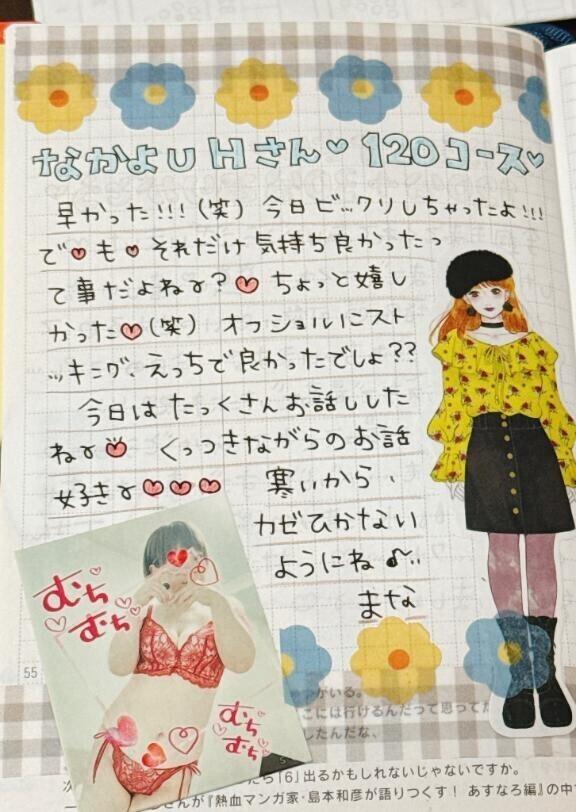 なかよU Hさん♡ 120コース♡
早かった!!!(笑) 今日ビックリしちゃったよ!!!
で♥も♥それだけ気持ち良かったっ
て事だよねɤ?♥ ちょっと嬉し
かった♥(笑) オフショルにスト
ッキング、えっちで良かったでしょ??
今日はたっくさんお話しした
ねɤ♥ くっつきながらのお話
好きɤ♥♥♥ 寒いから、
カゼひかない
ようにね♪..
まな
むち
むち
むち
むち
55
がいる。
こには行けるんだって思ってた
したんだな、
ら「6」出るかもしれないじゃないですか。
さんが『熱血マンガ家・島本和彦が語りつくす! あすなろ編』の中